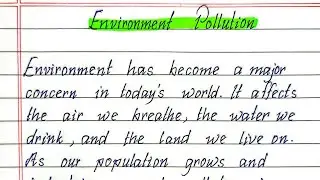 Environment Pollution
Environment has become a major
concern in today's world. It affects
the air we breathe, the water we
drink, and the land we live on.
As our population grows and